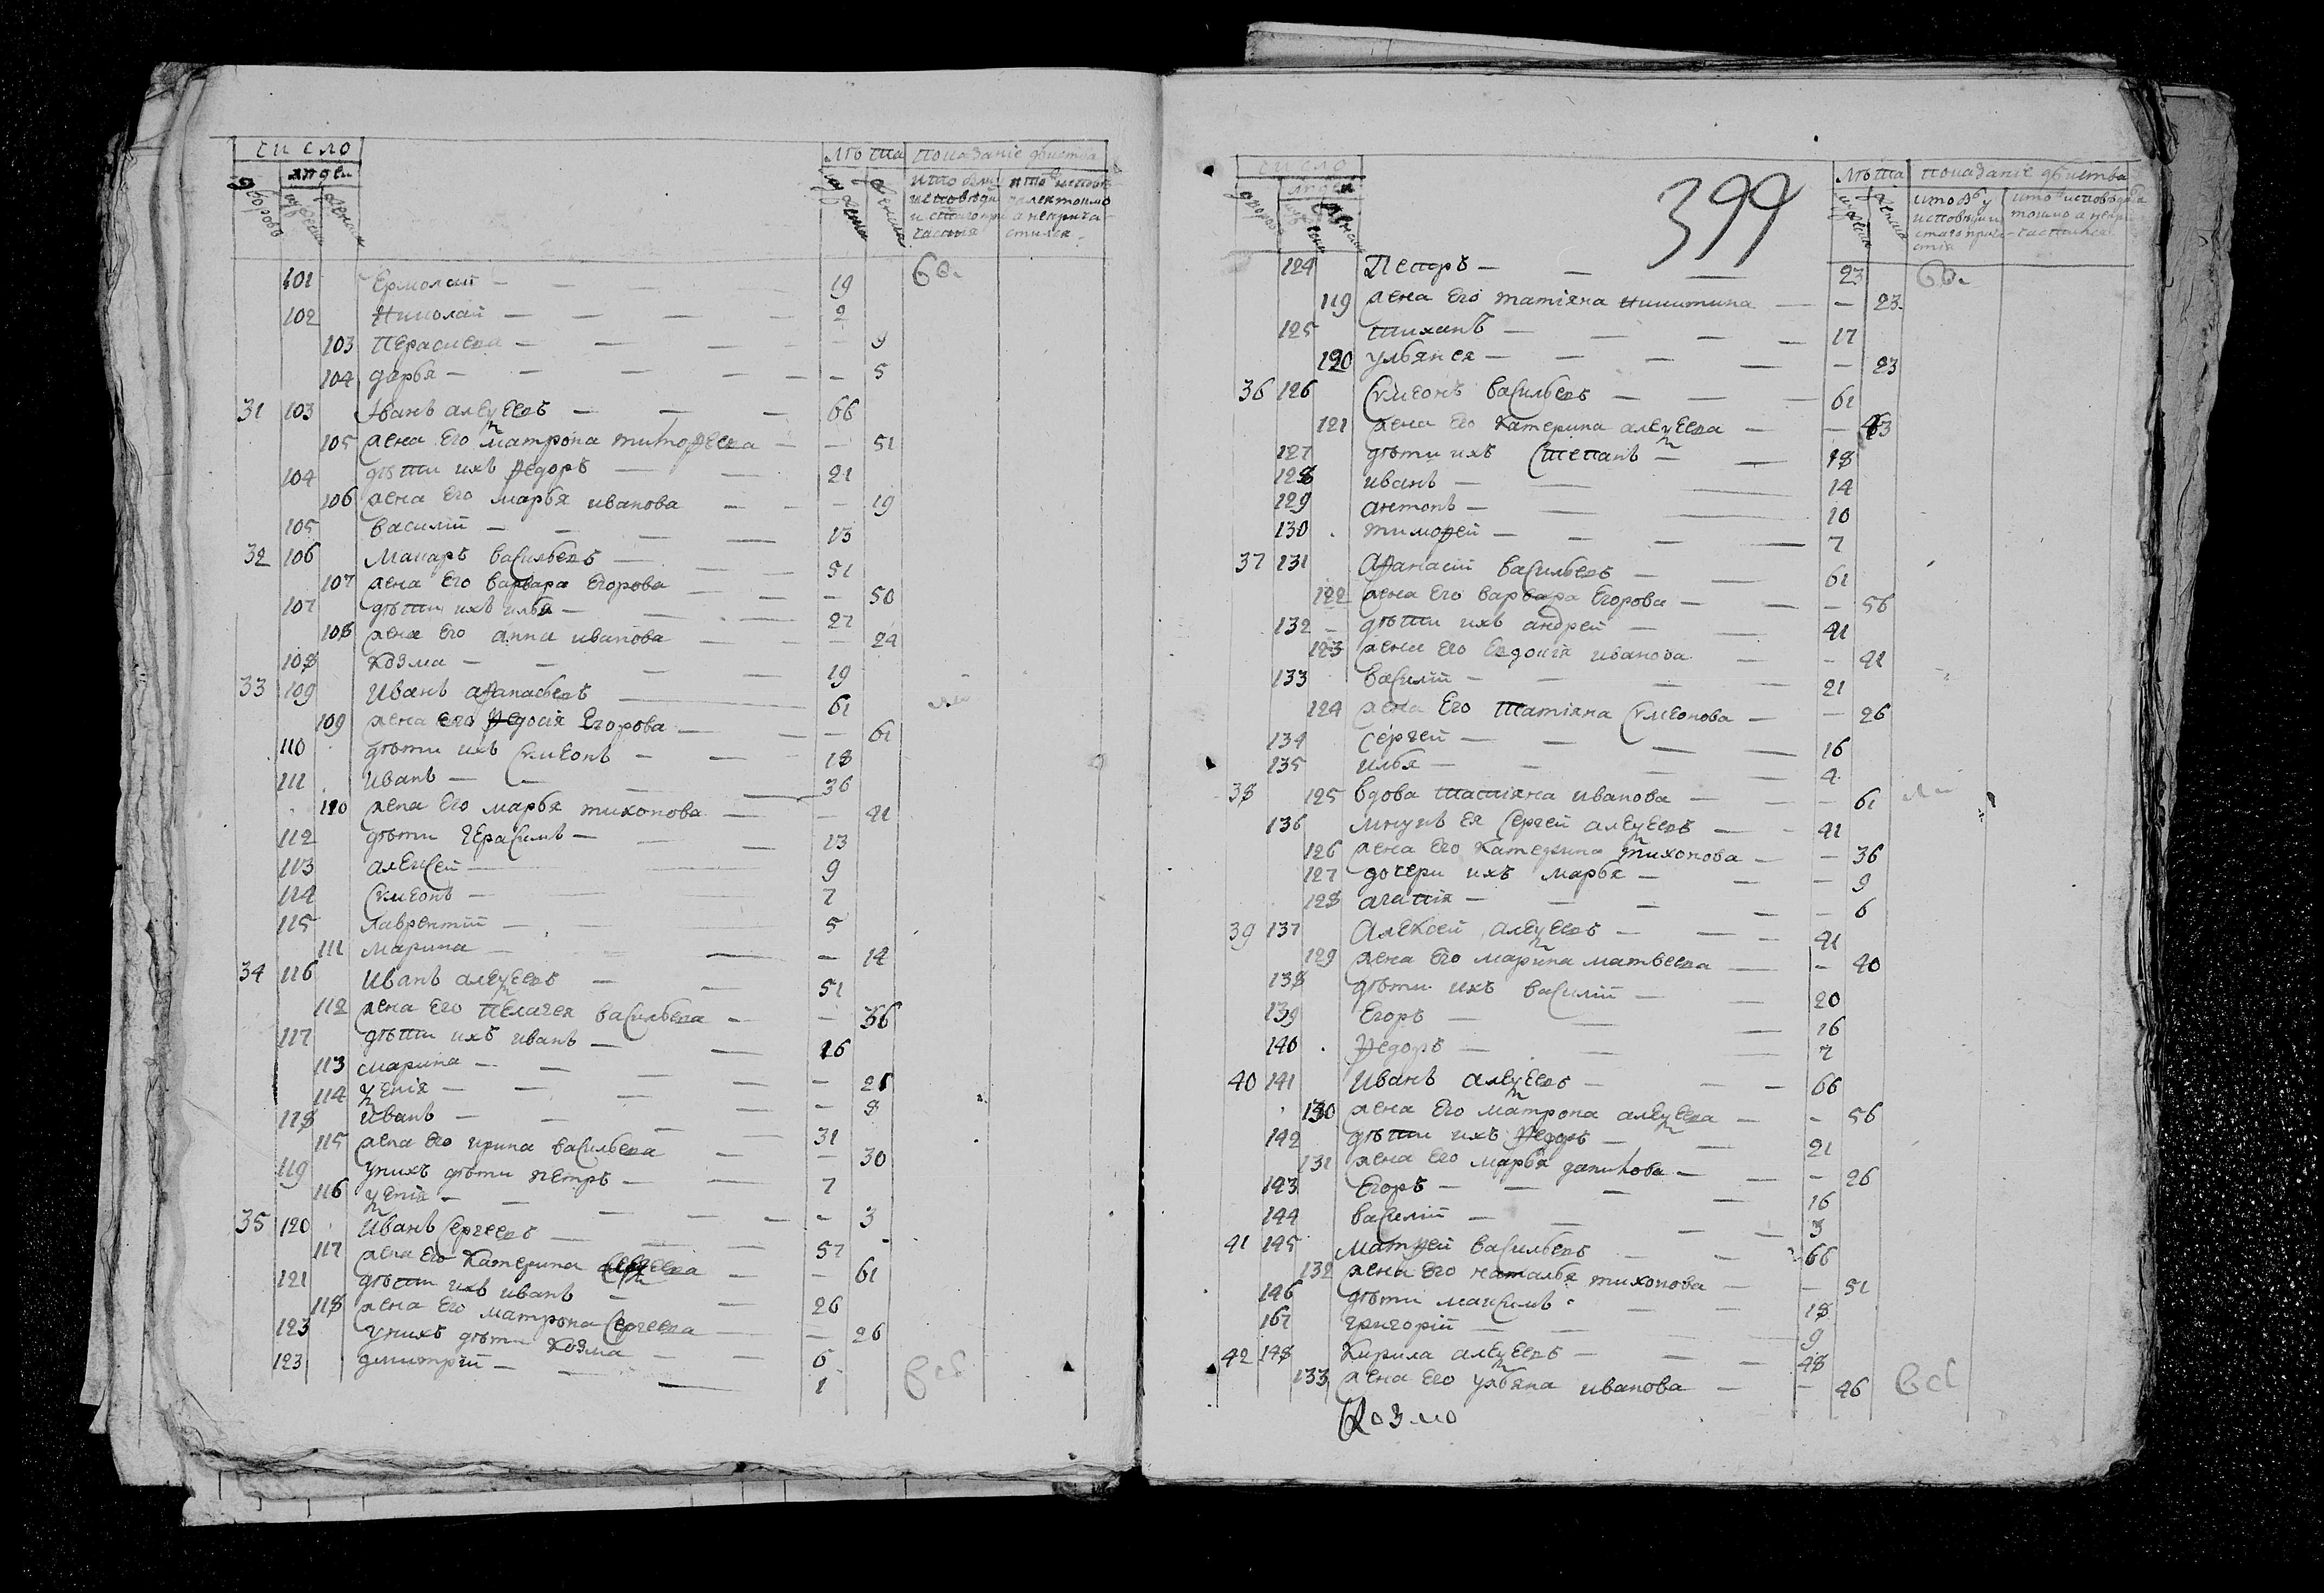 число
людей
дворовъ
мужеска
женска
лѣта
показаніе дѣйства
мужеска
женска
101 Ермолай — 19
102 Николай — 2
103 Пераскева — 9
104 дарья — 5
31 103 Іванъ алеѯеевъ — 66
105 жена Его матрона тимофеева — 51
104 дѣти ихъ федоръ — 21
106 жена Его марья иванова — 19
105 василій — 13
32 106 Макаръ васильевъ — 51
107 жена Его варвара Егорова — 50
107 дѣти ихъ илья — 27
108 жена Его анна иванова — 24
108 Козма — 19
33 109 Иванъ афанасьевъ — 61
109 жена его федосія Егорова — 61
110 дѣти ихъ Симеонъ — 18
111 Иванъ — 36
110 жена Его марья тихонова — 41
112 дѣти герасимъ — 13
113 алексей — 9
114 Симеонъ — 7
115 лаврентій — 5
111 марина — 14
34 116 Иванъ алеѯеевъ — 51
112 жена Его пелагея васильева — 56
117 дѣти ихъ иванъ — 16
113 марина — 21
114 ѯенія — 8
118 Иванъ — 31
115 жена Его ирина васильева — 30
119 у нихъ дѣти петръ — 7
116 ѯенія — 3
35 120 Иванъ Сергеевъ — 57
117 жена Его Катерина — 61
121 дѣти ихъ иванъ — 26
118 жена Его матрона Сергеева — 26
123 у нихъ дѣти Козма — 6
123 дмитрій — 1
399
число
людей
дворовъ
мужеска
женска
лѣта
показаніе дѣйства
124 Петръ — 23
119 жена Его татіяна никитина — 23
125 тиханъ — 17
120 ульянея — 23
36 126 Симеонъ васильевъ — 61
121 жена Его Катерина алеѯеева — 63
127 дѣти ихъ Степанъ — 18
128 иванъ — 14
129 антонъ — 10
130 тимофей — 7
37 131 Афанасій васильевъ — 61
122 жена Его варвара Егорова — 56
132 дѣти ихъ андрей — 41
123 жена Его Евдокія иванова — 41
133 василій — 21
124 жена Его татіяна Симеонова — 26
134 Сергей — 16
135 илья — 4
38 125 вдова татіяна иванова — 61
136 внукъ Ея Сергей алеѯеевъ — 41
126 жена Его Катерина тихонова — 36
127 дочери ихъ марья — 9
128 агапія — 6
39 137 Алексей алеѯеевъ — 41
129 жена Его марина матвеева — 40
138 дѣти ихъ василій — 20
139 Егоръ — 16
140 федоръ — 7
40 141 Иванъ алеѯеевъ — 66
130 жена Его матрона алеѯеева — 56
142 дѣти ихъ федоръ — 21
131 жена Его марья данилова — 26
143 Егоръ — 16
144 василій — 3
41 145 матѳей васильевъ — 66
132 жена Его наталья тихонова — 51
146 дѣти максимъ — 18
167 григорій — 9
42 148 Кирила алеѯеевъ — 48
133 жена Его ульяна иванова — 46